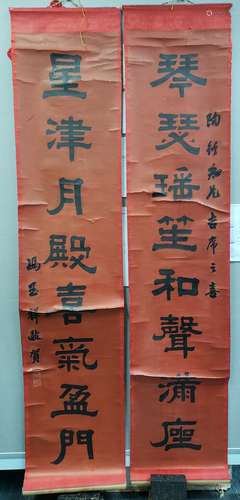 琴瑟瑶笙和聲滿座
陶行知兄吉席之喜
星津月殿喜氣盈門
馮玉祥敬賀